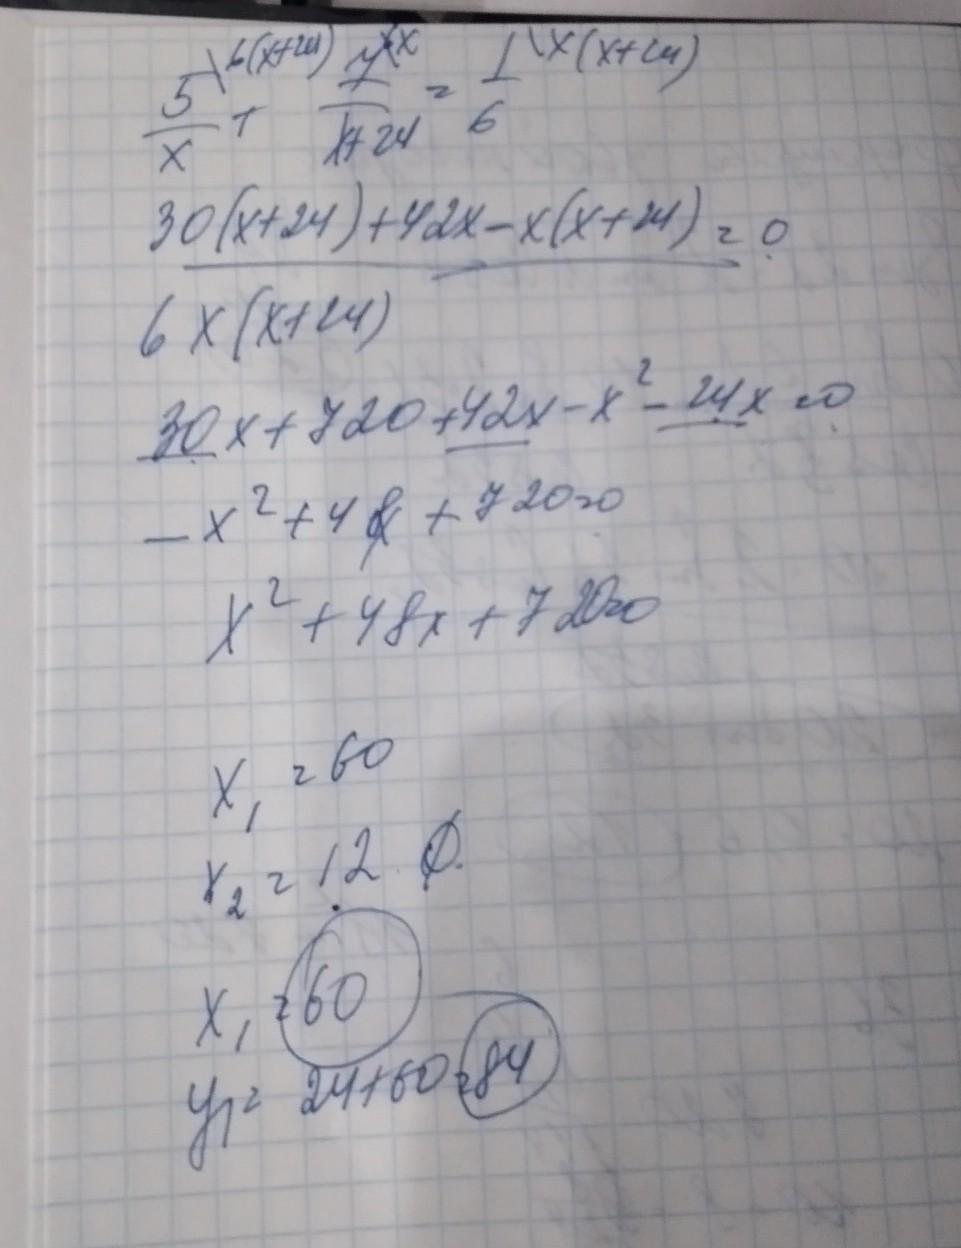 5\6(x+24) 7\6x = 1\x(x+24)
x + x+24 6
30(x+24)+42x-x(x+24) = 0
6x(x+24)
30x+720+42x-x²-24x=0
-x²+48x+720=0
x²+48x+720=0
x₁ = 60
x₂ = 12 ∅.
x₁ = 60
y₁ = 24+60=84